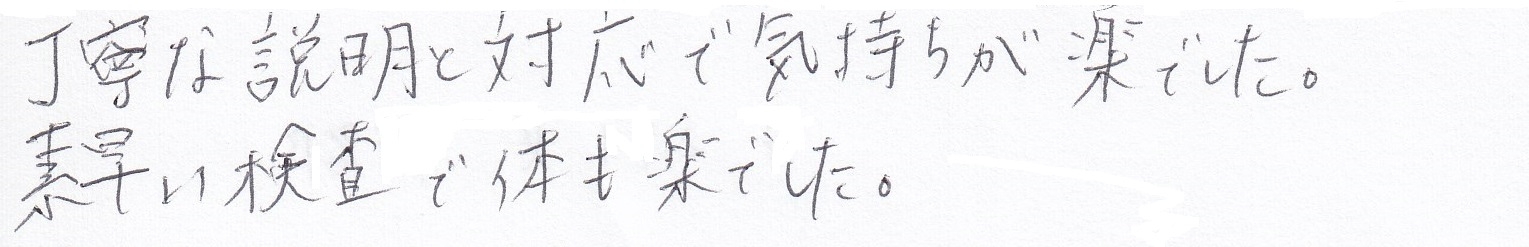 丁寧な説明と対応で気持ちが楽でした。
素早い検査で体も楽でした。